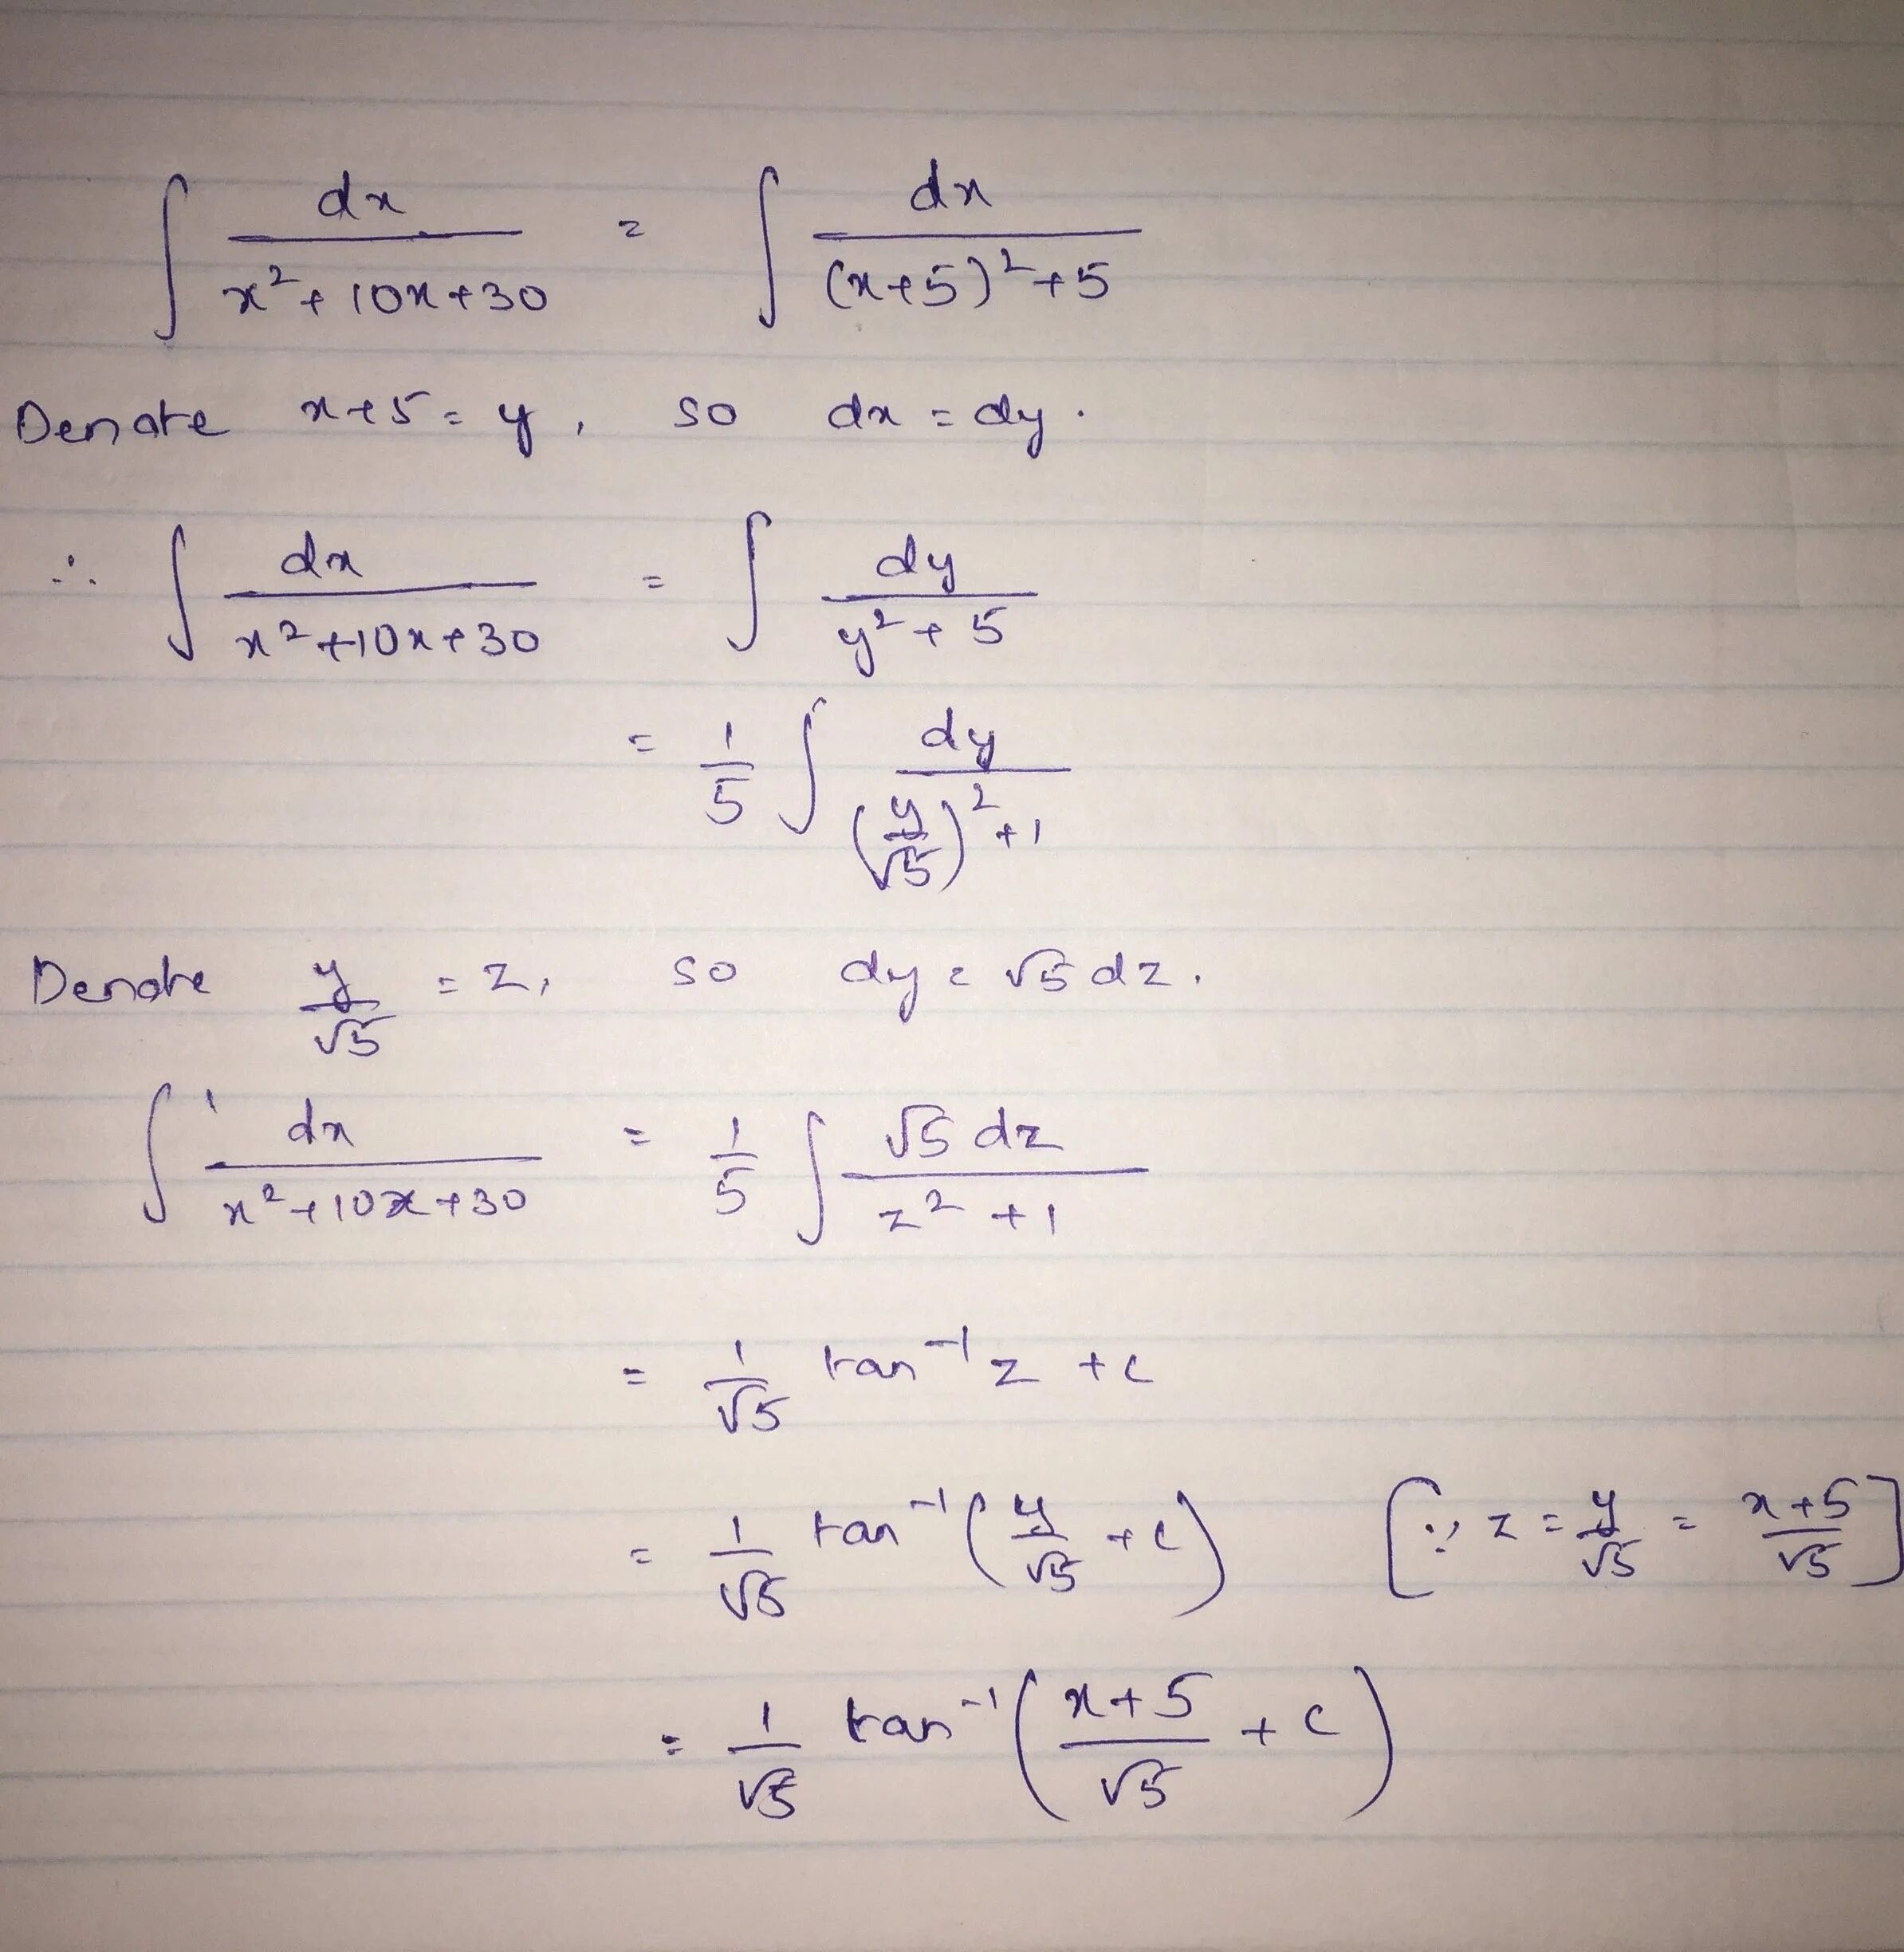 ∫ dx / (x² + 10x + 30) = ∫ dx / ((x+5)² + 5)
Denote x+5 = y, so dx = dy.
∴ ∫ dx / (x² + 10x + 30) = ∫ dy / (y² + 5)
= 1/5 ∫ dy / ((y/√5)² + 1)
Denote y/√5 = z, so dy = √5 dz.
∫ dx / (x² + 10x + 30) = 1/5 ∫ √5 dz / (z² + 1)
= 1/√5 tan⁻¹ z + c
= 1/√5 tan⁻¹ (y/√5 + c) [∵ z = y/√5 = (x+5)/√5]
= 1/√5 tan⁻¹ ((x+5)/√5 + c)